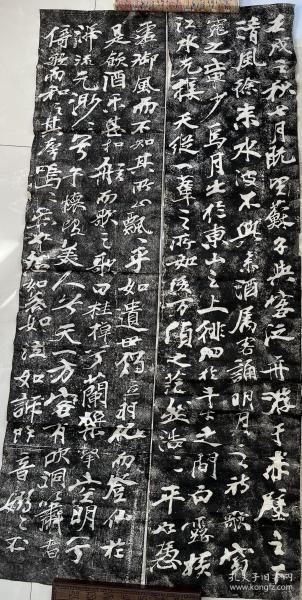 壬戌之秋七月既望蘇子與客泛舟游于赤壁之下
清風徐來水波不興舉酒属客誦明月之詩歌窈
窕之章少焉月出於東山之上徘徊於斗牛之間白露橫
江水光接天縱一葦之所如凌萬頃之茫然浩浩乎如憑
虛御風而不知其所止飄飄乎如遺世獨立羽化而登仙於
是飲酒樂甚扣舷而歌之歌曰桂棹兮蘭槳擊空明兮
泝流光渺渺兮予懷望美人兮天一方客有吹洞簫者
倚歌而和之其聲嗚嗚然如怨如慕如泣如訴餘音嫋嫋不